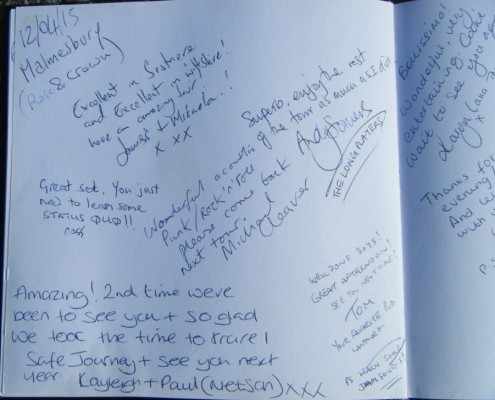 12/04/15
Malmesbury
(Rose & Crown)
Excellent in
and Excellent in wiltshire!
have an amazing tour!!
+
x xx
Superb, enjoy the rest
of the tour as much as I did
Andy
THE LONG PLAYERS
Great set. You just
need to learn some
STATUS QUO!!
Wonderful acoustic
Punk/Rock'n'Roll
please come back
next tour.
Michael
Cleaver
WELL DONE GUYS!
GREAT AFTERNOON!
SEE YOU NEXT TIME!
TOM
YOUR FAVORITE PUB
PS
Amazing! 2nd time weve
been to see you + so glad
we took the time to travel
Safe Journey + see you next
year Kayleigh + Paul (Netsan) xxx
Bellissimo!
Wonderful, very,
entertaining
wait to see you
x
Thanks for
evening!
And
with
P.S